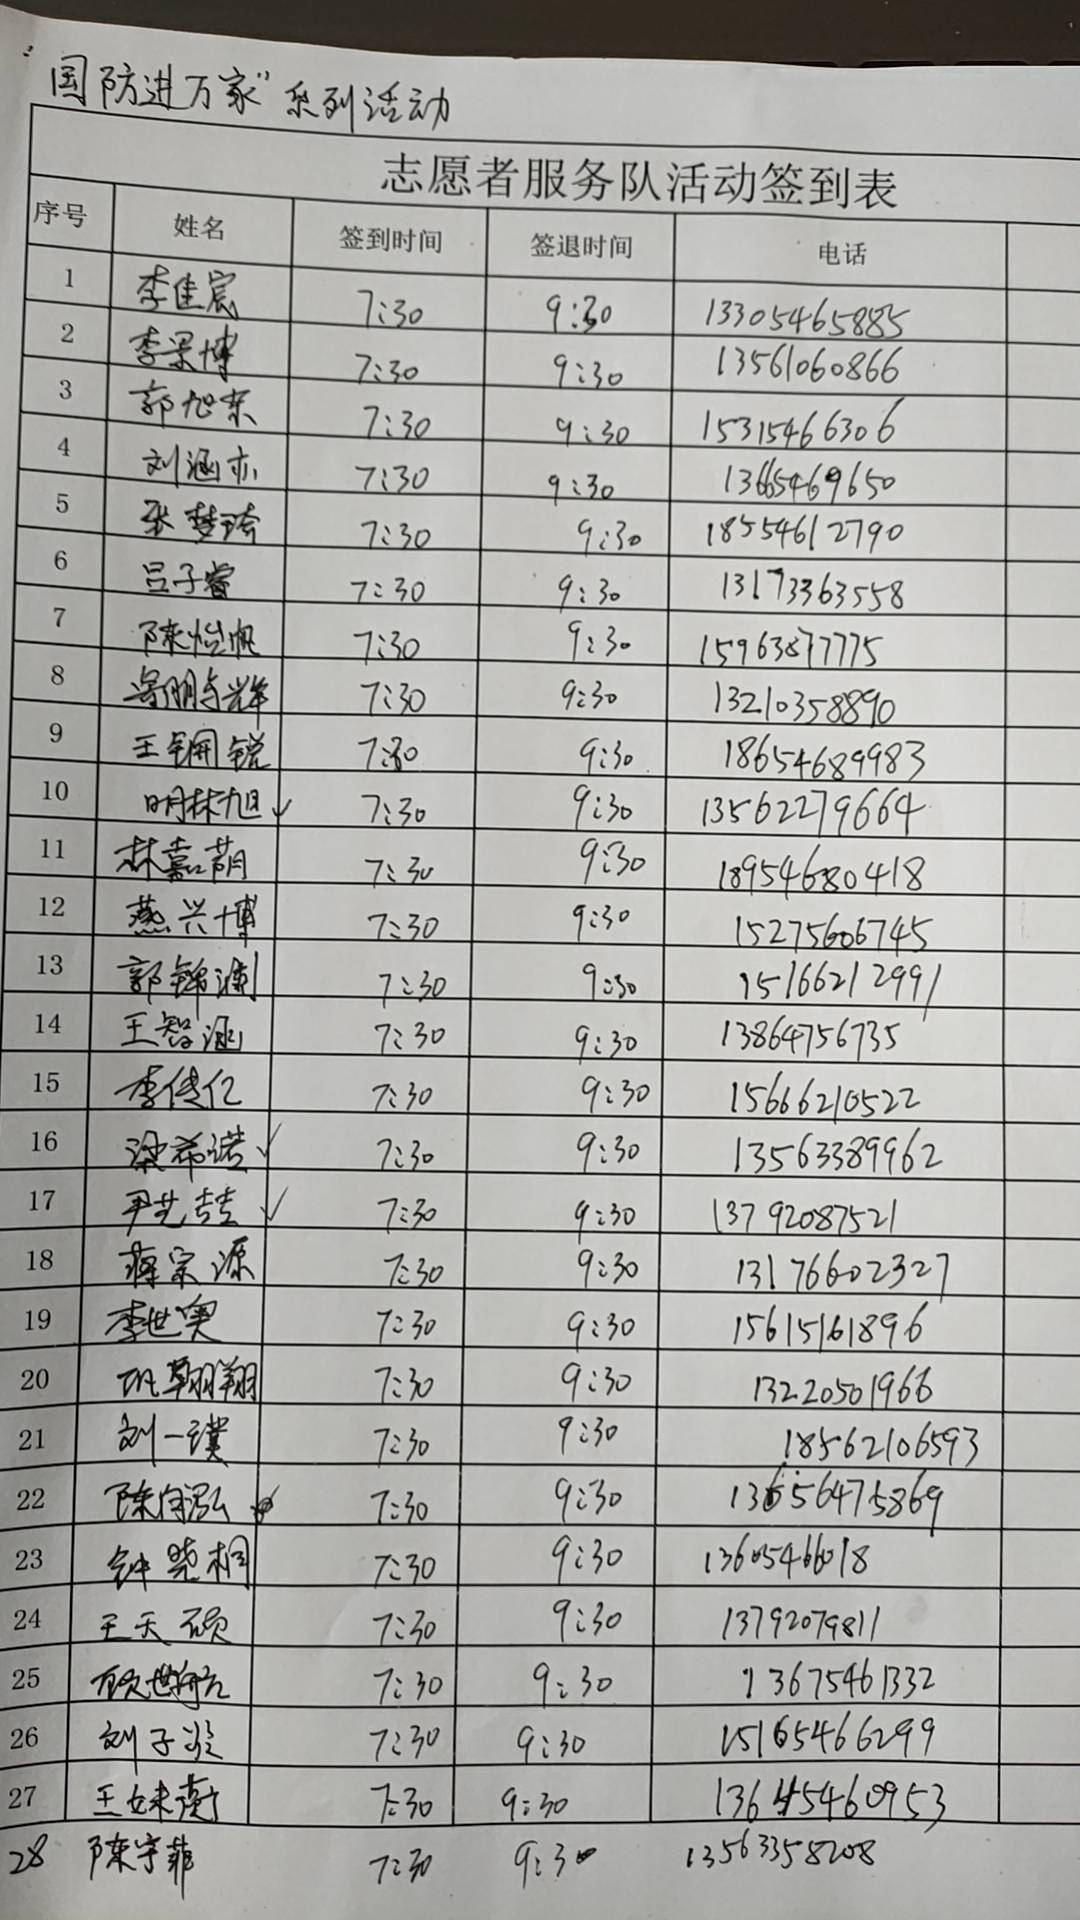 国防进万家"系列活动
志愿者服务队活动签到表
序号 姓名 签到时间 签退时间 电话
1 李佳宸 7:30 9:30 13305465885
2 李杲博 7:30 9:30 13561060866
3 郭旭东 7:30 9:30 15315466306
4 刘涵亦 7:30 9:30 13665469650
5 张梦琦 7:30 9:30 18554612790
6 吕子睿 7:30 9:30 13173363558
7 陈怡帆 7:30 9:30 15963877775
8 7:30 9:30 13210358890
9 王锎锐 7:30 9:30 18654689983
10 明林旭 ✓ 7:30 9:30 13562279664
11 林嘉萌 7:30 9:30 18954680418
12 燕兴博 7:30 9:30 15275606745
13 郭锦澜 7:30 9:30 15166212991
14 王智涵 7:30 9:30 13864756735
15 李传亿 7:30 9:30 15666210522
16 梁希诺 ✓ 7:30 9:30 13563389962
17 尹艺喆 ✓ 7:30 9:30 13792087521
18 蒋宗源 7:30 9:30 13176602327
19 李世奥 7:30 9:30 15615161896
20 巩翱翔 7:30 9:30 13220501966
21 刘一璞 7:30 9:30 18562106593
22 7:30 9:30
23 钟尧桐 7:30 9:30 13605466018
24 王天硕 7:30 9:30 13792079811
25 顾世航 7:30 9:30 13675461332
26 刘子 7:30 9:30 15165466299
27 王 7:30 9:30
28 陈宇菲 7:30 9:30 13563358208